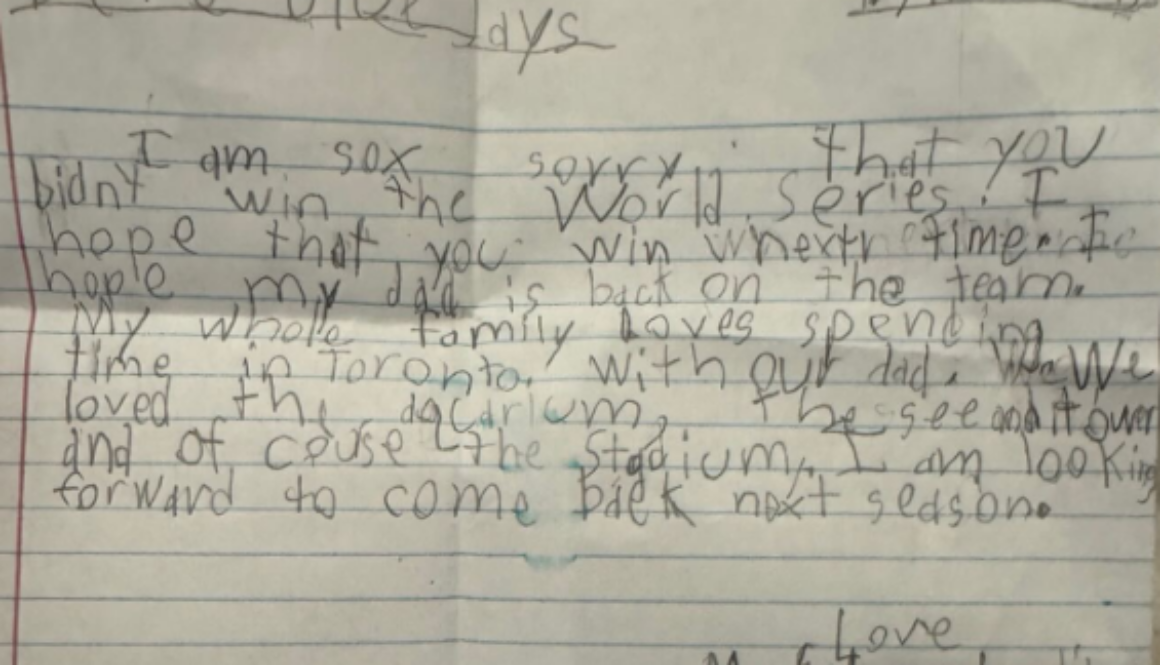 Jays
I am sox sorry that you
bidnt win the World Series. I
hope that you win whextr time. I
hople my dad is back on the team.
My whole family Loves spending
time in Toronto. With our dad. We We
loved the aqcarium, the see and it ower
and of couse the Stadium. I am looking
forward to come back next season.
Love